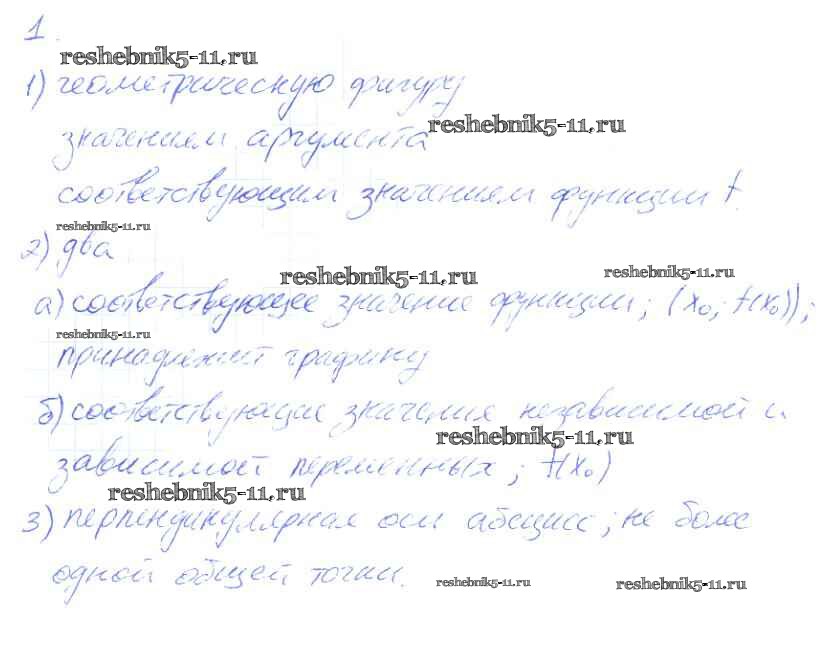 1.
reshebnik5-11.ru
1) геометрическую фигуру
значениям аргумента
reshebnik5-11.ru
соответствующим значениям функции f.
reshebnik5-11.ru
2) два
reshebnik5-11.ru
reshebnik5-11.ru
а) соответствующее значение функции; (x₀; f(x₀));
reshebnik5-11.ru
принадлежит графику
б) соответствующие значения независимой и
reshebnik5-11.ru
зависимой переменных; f(x₀)
reshebnik5-11.ru
3) перпендикулярная оси абсцисс; не более
одной общей точки.
reshebnik5-11.ru
reshebnik5-11.ru